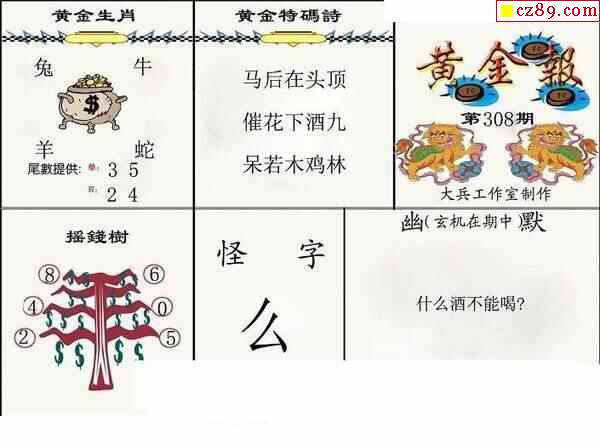 cz89.com
黄金生肖
兔 牛
$
羊 蛇
尾數提供: 单: 3 5
双: 2 4
黄金特碼詩
马后在头顶
催花下酒九
呆若木鸡林
黄金報
第308期
大兵工作室制作
摇錢樹
8 6
4 0
2 5
怪 字
么
幽(玄机在期中)默
什么酒不能喝?